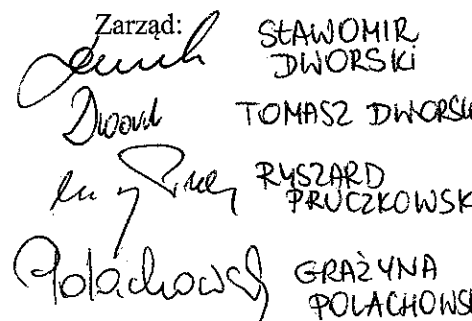 Zarząd:
SŁAWOMIR
DWORSKI
TOMASZ DWORSK
RYSZARD
PRUCZKOWSK
Polachowsk
GRAŻYNA
POLACHOWSK